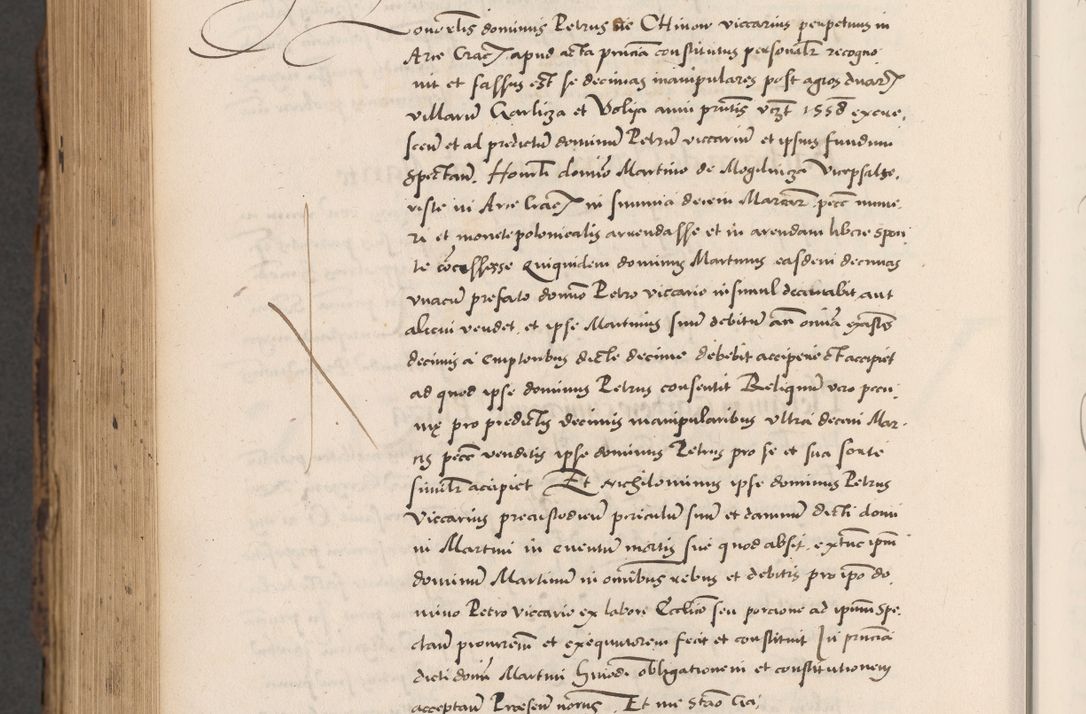 Honorabilis dominus Petrus de Cthinow viccarius perpetuus in
Arce Crac apud acta prucia constitutus personalr recogno
uit et fassus est se decimas manipulares post agros duar
villarum Garlicza et Volija anni pntis vczt 1558 excre,
scen et ad predictum dominum Petrum viccarium et ipsius fundum
spectan. Honorli domio Martino de Mogilnicza Vicepsalte,
riste in Arce Crac in summa decem Marcar pecc nume,
ri et monete polonicalis arrendasse et in arendam libere spon
te concessisse Quiquidem dominus Martinus easdem decimas
vnacum prefato domio Petro viccario insimul decantabit aut
alicui vendet, et ipse Martinus suum debitum an omia
decimis a emptoribus dicte decime debebit accipere et accipiet
ad quod ipse dominus Petrus consentit Reliquum vero pecu
nie pro predictis decimis manipularibus vltra decem Mar,
cis pecc venditis ipse dominus Petrus pro se et sua sorte
similr accipiet Et nichilominus ipse dominus Petrus
Viccarius precustodien periculum suum et damnum dicti domi
ni Martini in euentum mortis sue quod absit, extunc ipm
dominum Martinum in omibus rebus et debitis pro ipo do
mino Petro viccario ex labore Ecclie seu porcione ad ipsum spe,
ctan procuratorem et exequutorem fecit et constituit In prncia
dicti domi Martini hmodi obligationem et constitutionem
acceptan Presen Et me Stao